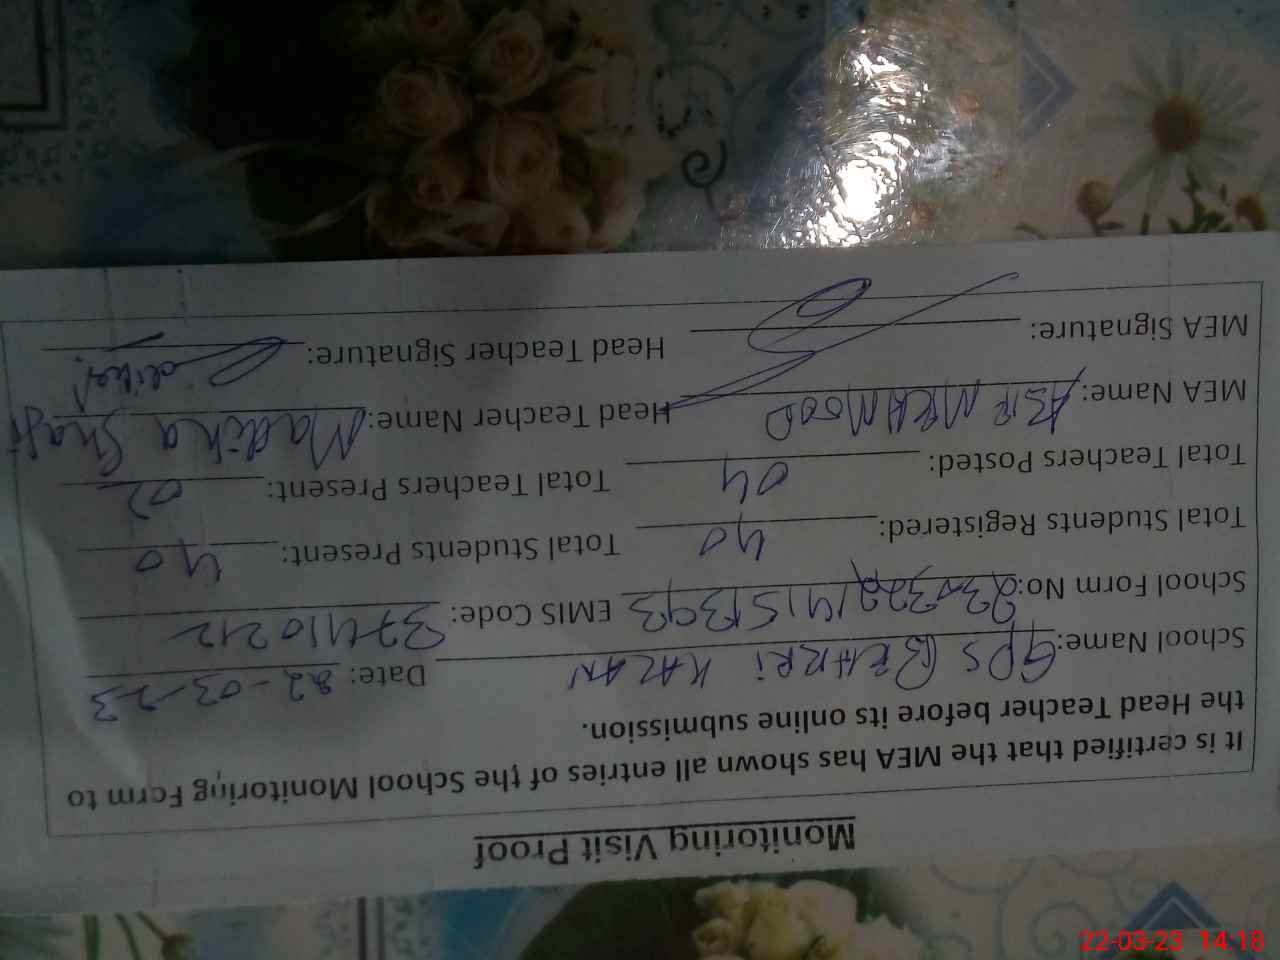 Monitoring Visit Proof
It is certified that the MEA has shown all entries of the School Monitoring Form to
the Head Teacher before its online submission.
School Name: GPS BEHRRi KALAN Date: 22-03-23
School Form No: 230322141515393 EMIS Code: 37410212
Total Students Registered: 40 Total Students Present: 40
Total Teachers Posted: 04 Total Teachers Present: 02
MEA Name: ASIF MEHMOOD Head Teacher Name: Madiha Shafi
MEA Signature: Head Teacher Signature:
22-03-23 14:18